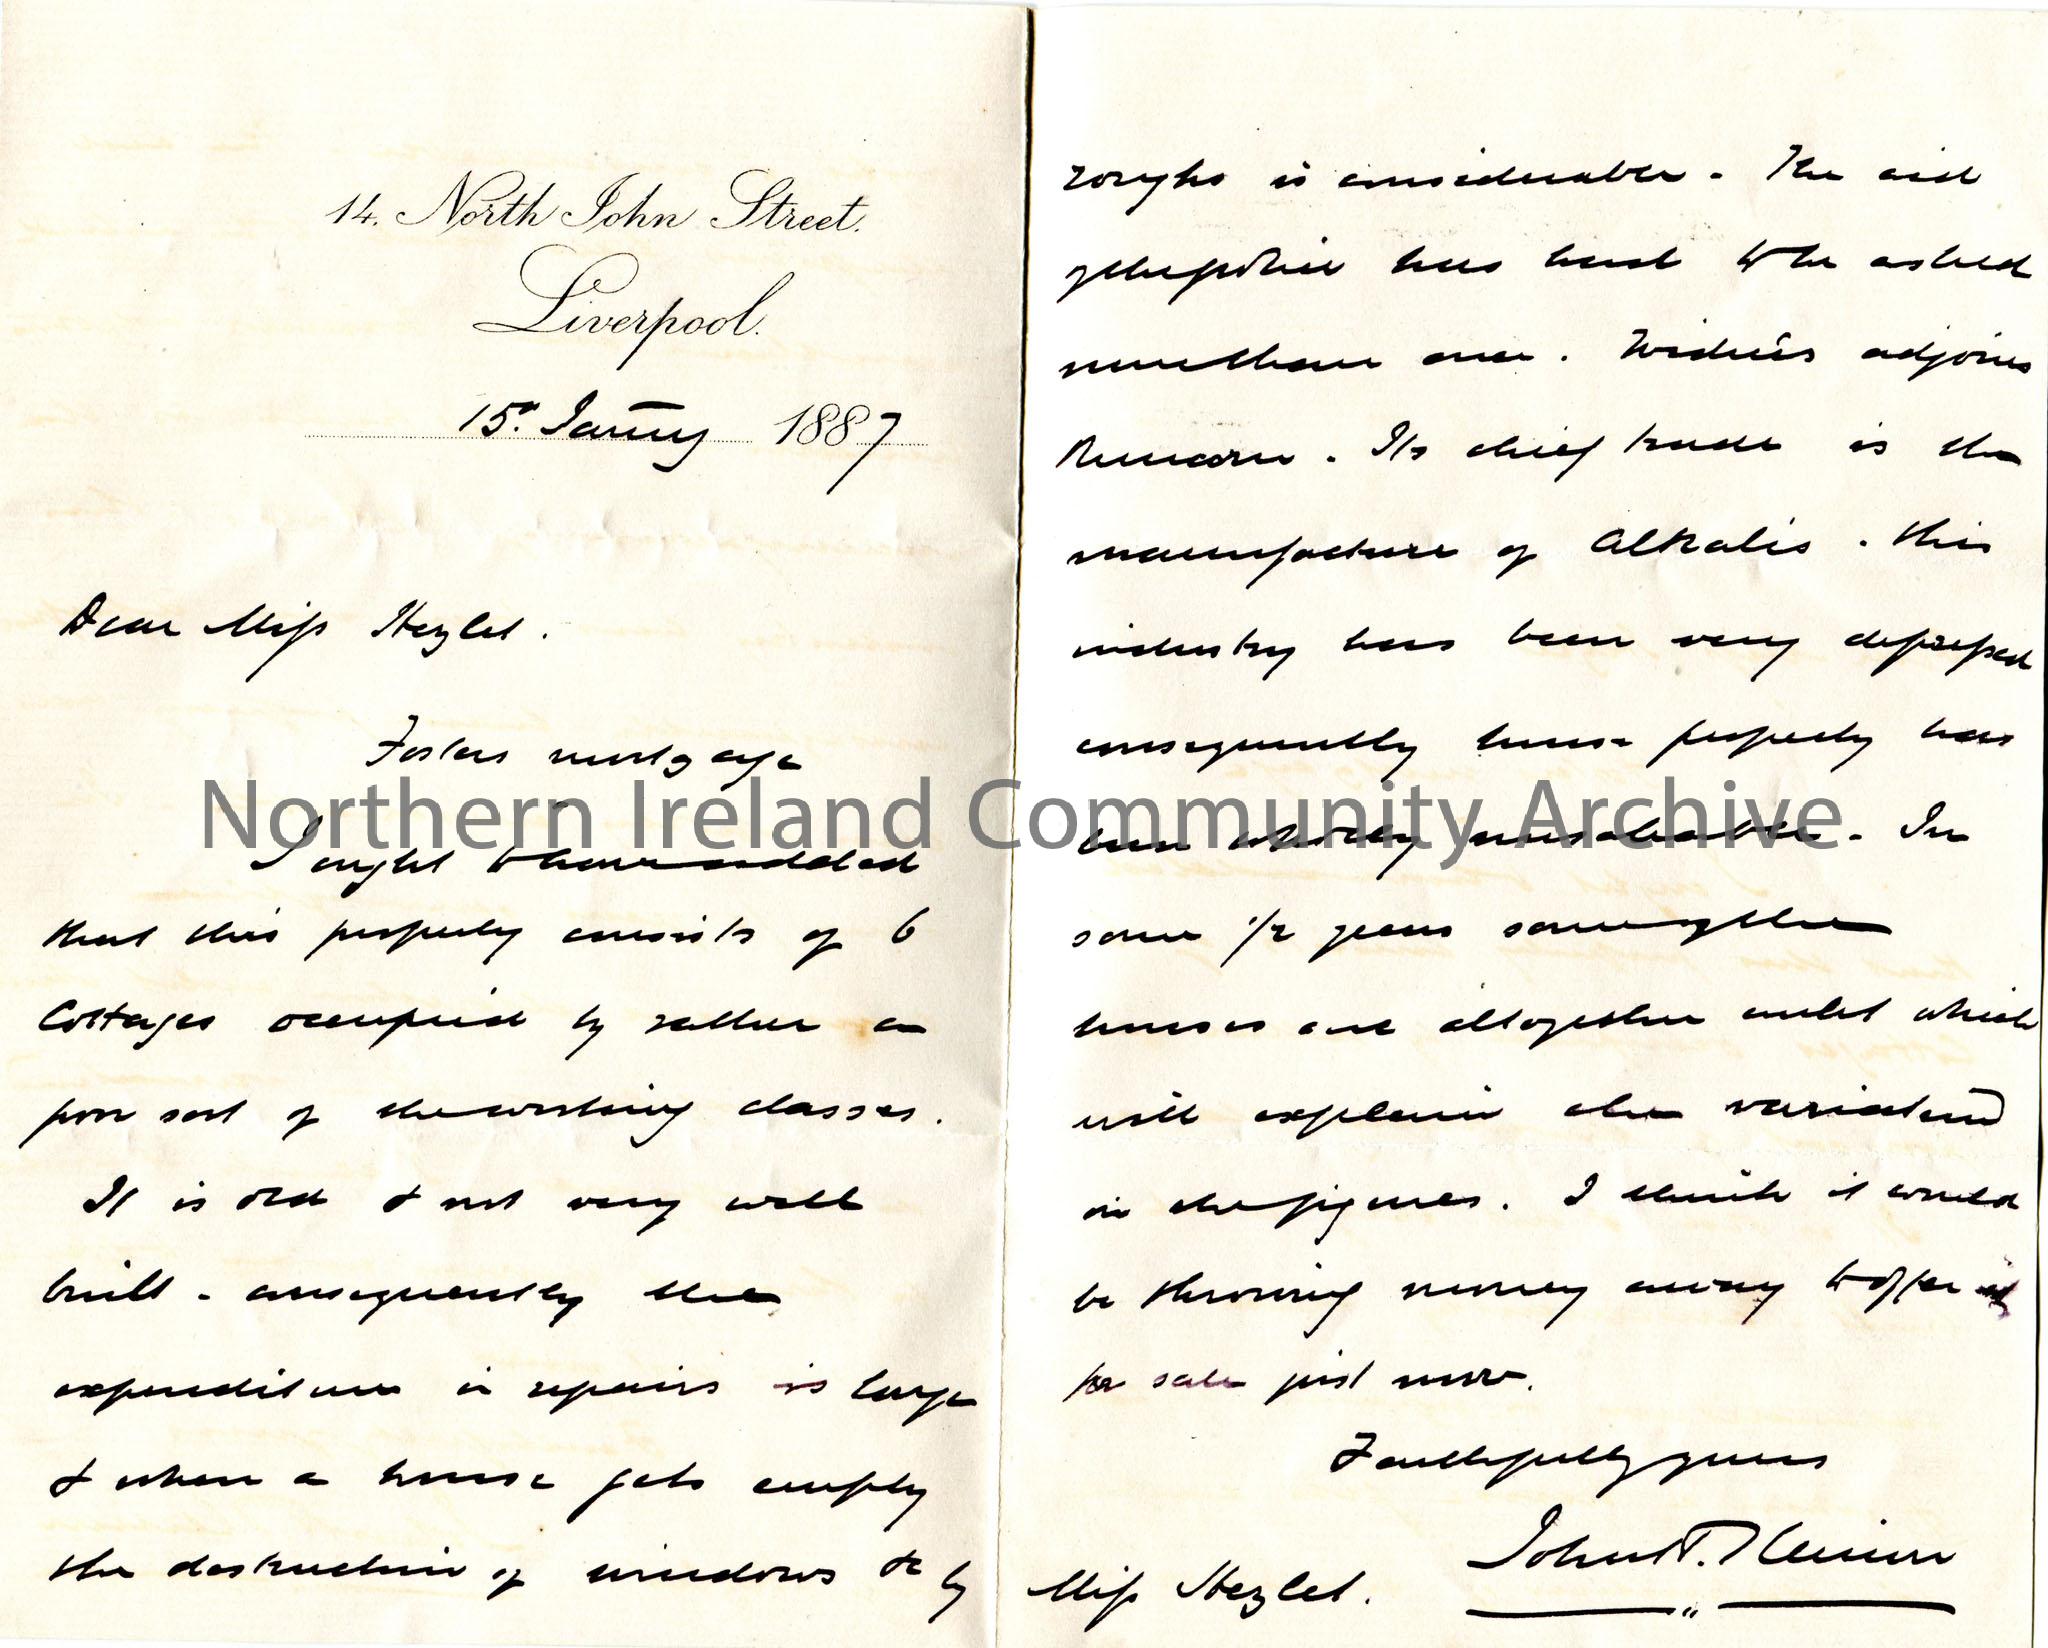 14. North John Street.
Liverpool.
15th Janury 1887
Dear Miss Hezlet.
Fosters mortgage
I ought to have added
that this property consists of 6
Cottages occupied by rather a
poor sort of the working classes.
It is old & not very well
built - consequently the
expenditure in repairs is large
& when a house gets empty
the destruction of windows &c by
roughs is considerable. The aid
of the police has had to be asked
more than once. Widnes adjoins
Runcorn. Its chief trade is the
manufacture of Alkalis. this
industry has been very depressed
consequently house property has
been wholly unsaleable. In
some 1/2 years some of the
houses are altogether unlet which
will explain the variations
in the figures. I think it would
be throwing money away to offer it
for sale just now.
Faithfully yours
John T.
Miss Hezlet.
Northern Ireland Community Archive